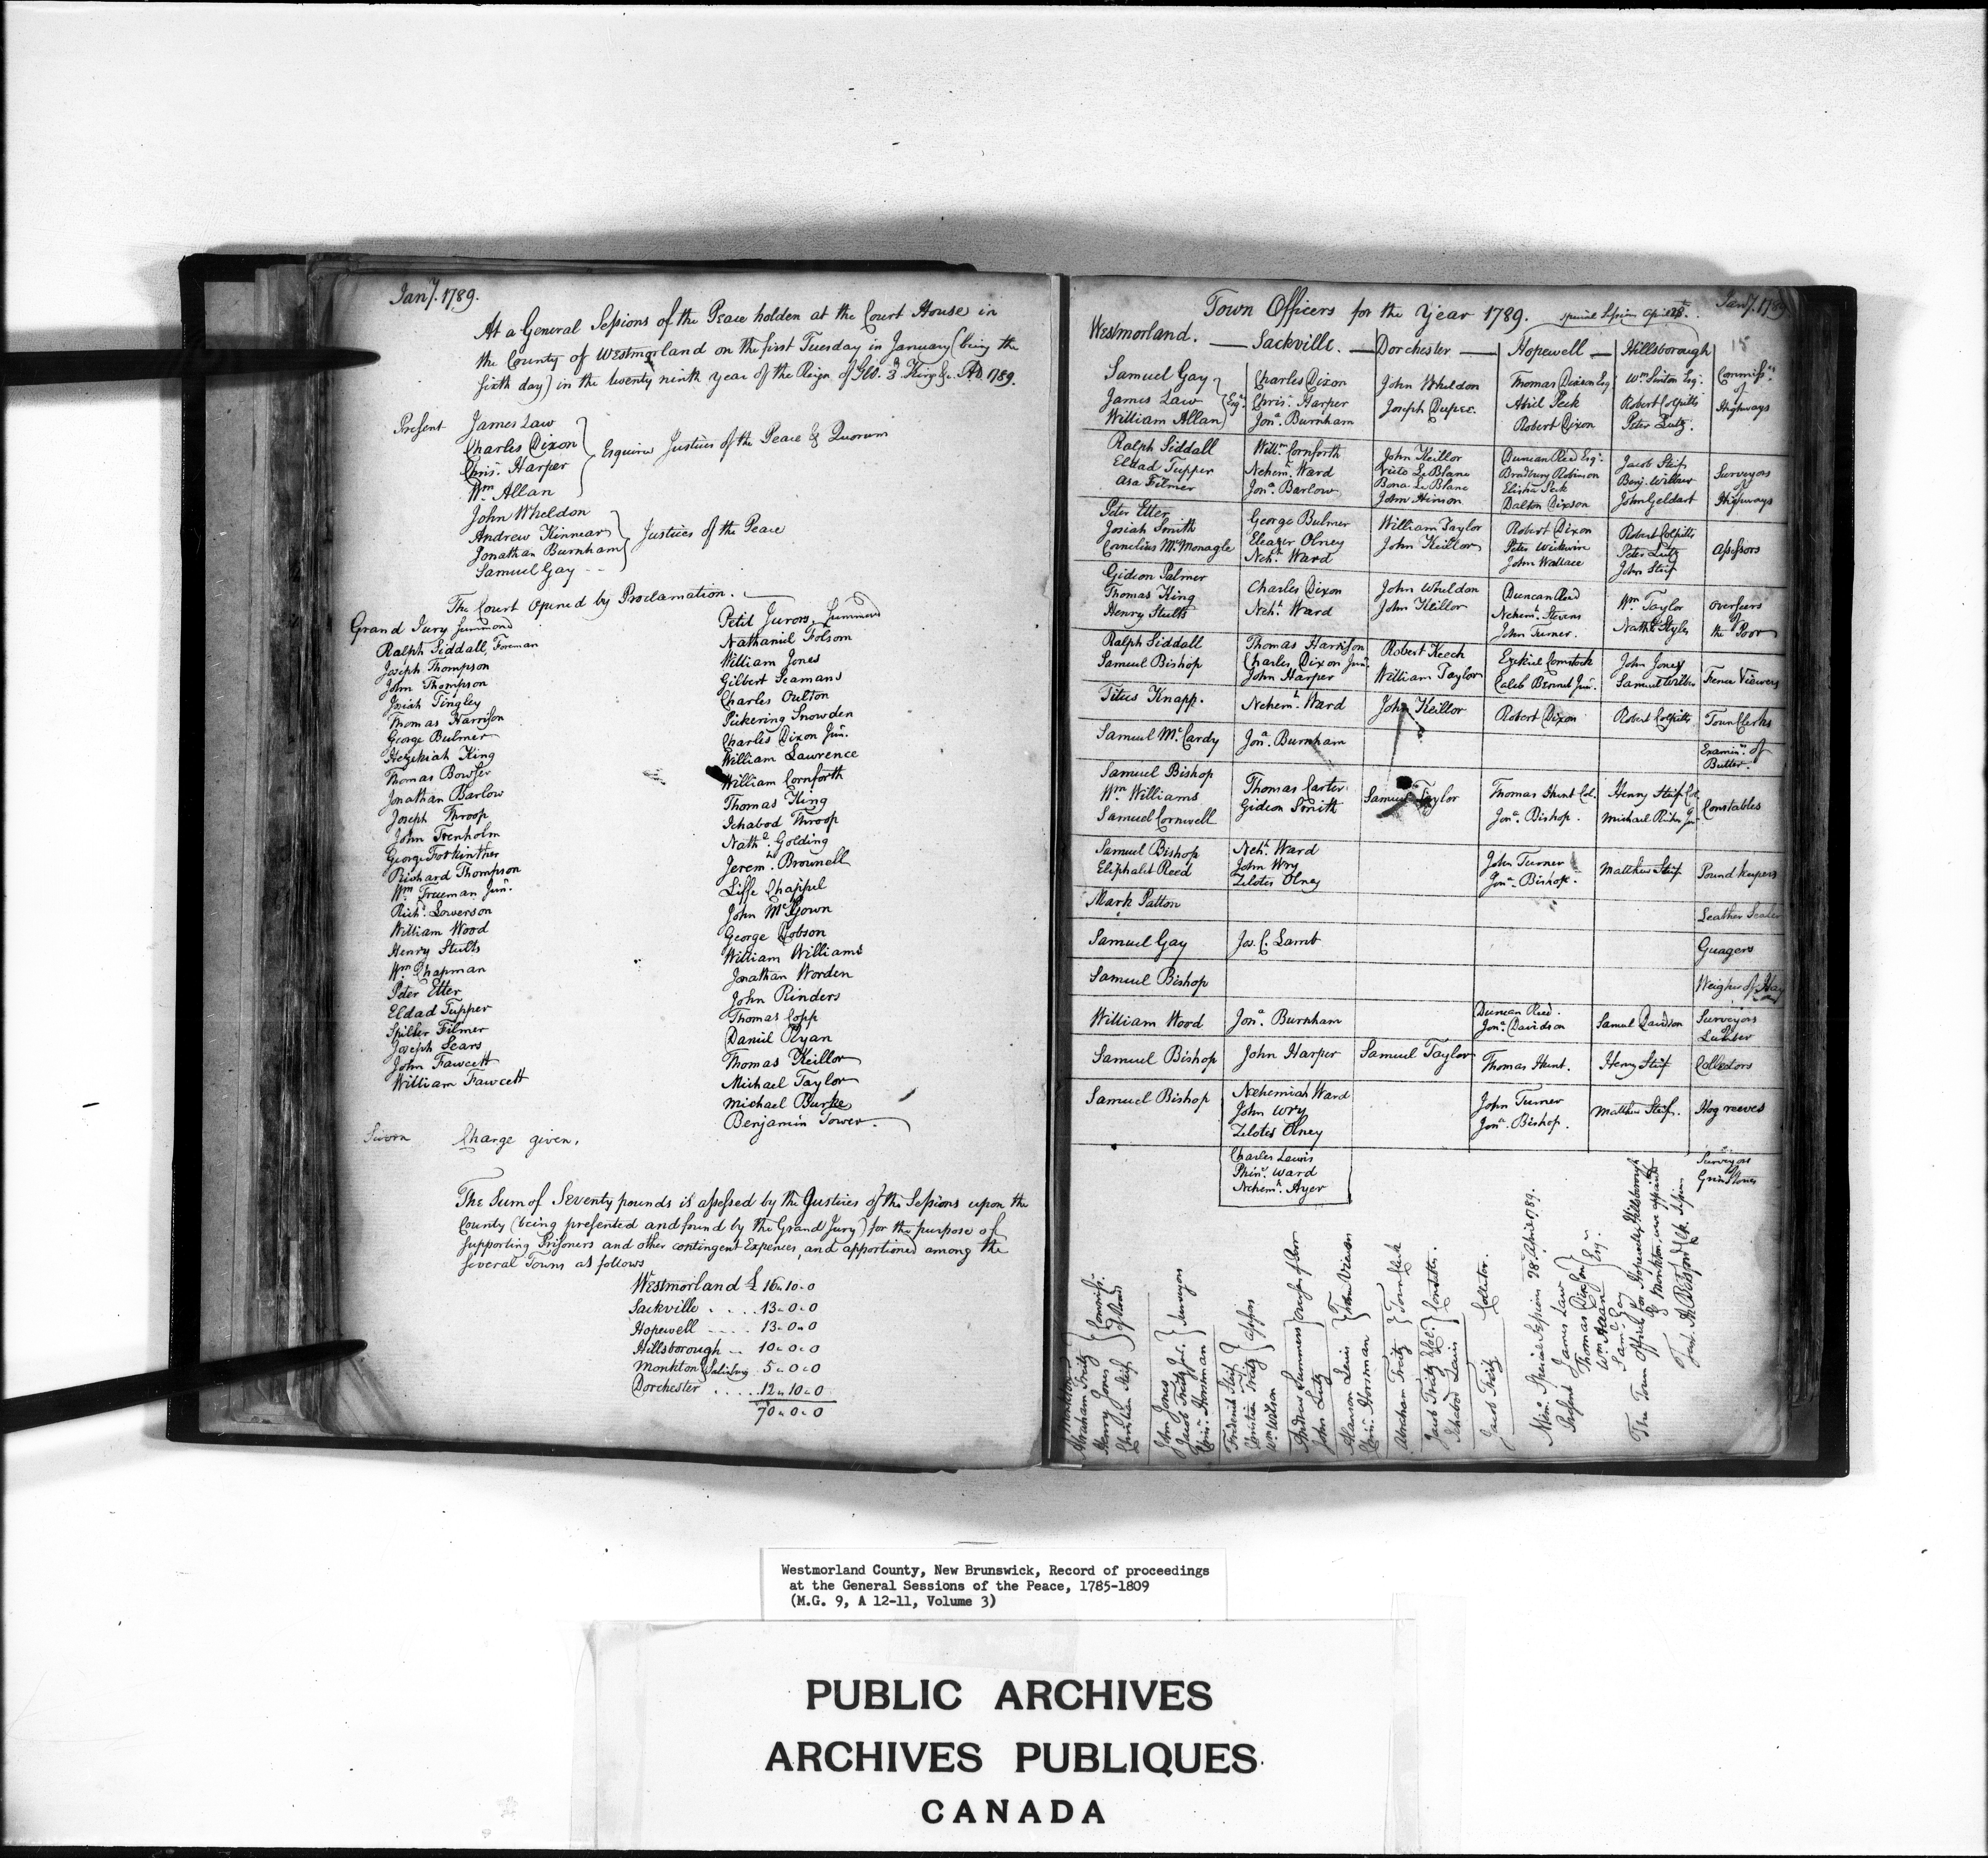 Jany. 1789.
At a General Sessions of the Peace holden at the Court House in
the County of Westmorland on the first Tuesday in January (being the
sixth day) in the twenty ninth year of the Reign of Geo. 3d King &c. AD. 1789.
Present James Law
Charles Dixon
Chrisr. Harper
Wm. Allan
Esquires Justices of the Peace & Quorum
John Wheldon
Andrew Kinnear
Jonathan Burnham
Samuel Gay
Justices of the Peace
The Court Opened by Proclamation.
Grand Jury Summond
Ralph Siddall, Foreman
Joseph Thompson
John Thompson
Josiah Tingley
Thomas Harrison
George Bulmer
Hezekiah King
Thomas Bowser
Jonathan Barlow
Joseph Throop
John Trenholm
George Forkinther
Richard Thompson
Wm. Freeman Junr.
Richd. Lowerson
William Wood
Henry Stults
Wm. Chapman
Peter Etter
Eldad Tupper
Spiller Filmer
Joseph Sears
John Fawcett
William Fawcett
Petit Jurors, Summond
Nathaniel Folsom
William Jones
Gilbert Seamans
Charles Oulton
Pickering Snowden
Charles Dixon Junr.
William Lawrence
William Cornforth
Thomas King
Ichabod Throop
Nathl. Golding
Jeremh. Brownell
Liffe Chappel
John McGown
George Dobson
William Williams
Jonathan Worden
John Rinders
Thomas Copp
Daniel Ryan
Thomas Keillor
Michael Taylor
Michael Burke
Benjamin Tower
Sworn Charge given.
The Sum of Seventy pounds is assessed by the Justices of the Sessions upon the
County (being presented and found by the Grand Jury) for the purpose of
supporting Prisoners and other contingent Expences, and apportioned among the
several Towns as follows
Westmorland £ 16.10.0
Sackville 13.0.0
Hopewell 13.0.0
Hillsborough 10.0.0
Monkton & Salisbury 5.0.0
Dorchester 12.10.0
70.0.0
Town Officers for the Year 1789. Special Session April 28. Jany. 1789
15
Westmorland. Sackville. Dorchester Hopewell Hillsborough
Samuel Gay
James Law
William Allan
Esqrs.
Charles Dixon
Chrisr. Harper
Jona. Burnham
John Wheldon
Joseph Dupee.
Thomas Dixson Esqr
Abiel Peck
Robert Dixon
Wm. Sinton Esqr.
Robert Colpitts
Peter Lutz.
Commissrs.
of
Highways
Ralph Siddall
Eldad Tupper
Asa Filmer
Willm. Cornforth
Nehemh. Ward
Jona. Barlow
John Keillor
LeBlanc
Bona LeBlanc
John Hinson
Duncan Reed Esqr.
Bradbury Robinson
Elisha Peck
Dalton Dixson
Jacob Steif
Benj. Wilbur
John Geldart
Surveyors
of
Highways
Peter Etter
Josiah Smith
Cornelius McMonagle
George Bulmer
Eleazer Olney
Nehh. Ward
William Taylor
John Keillor
Robert Dixon
Peter Weikwire
John Wallace
Robert Colpitts
Peter Lutz
John Steif
Assessors
Gideon Palmer
Thomas King
Henry Stults
Charles Dixon
Nehh. Ward
John Wheldon
John Keillor
Duncan Reed
Nehemh. Stevens
John Turner.
Wm. Taylor
Nathl. Styles
Overseers
of
the Poor
Ralph Siddall
Samuel Bishop
Thomas Harrison
Charles Dixon Junr.
John Harper
Robert Keech
William Taylor
Ezekiel Comstock
Caleb Bennet Junr.
John Jones
Samuel Wilber
Fence Viewers
Titus Knapp.
Nehemh. Ward
John Keillor
Robert Dixon
Robert Colpitts
Town Clerks
Samuel McCardy
Jona. Burnham
Examinrs. of
Butter.
Samuel Bishop
Wm. Williams
Samuel Cornwell
Thomas Carter
Gideon Smith
Samuel Taylor
Thomas Hunt Col.
Jona. Bishop.
Henry Steif Col.
Constables
Samuel Bishop
Eliphalet Reed
Nehh. Ward
John Wry
Zelotes Olney
John Turner
Jona. Bishop.
Matthew Steif
Pound keepers
Mark Patton
Leather Sealer
Samuel Gay
Jos. C. Lamb
Guagers
Samuel Bishop
Weigher of Hay
William Wood
Jona. Burnham
Duncan Reed.
Jona. Davidson
Samuel Davidson
Surveyors
of
Lumber
Samuel Bishop
John Harper
Samuel Taylor
Thomas Hunt.
Henry Steif
Collectors
Samuel Bishop
Nehemiah Ward
John Wry
Zelotes Olney
John Turner
Jona. Bishop.
Matthew Steif.
Hog reeves
Charles Lewis
Phins. Ward
Nehemh. Ayer
Surveyors
Grindstones
Monkton
Abraham Tritz
Henry Jones
Christian Steif
Commissrs.
of Roads
John Jones
Jacob Tritz Jur.
Chrisr. Horsman
Surveyors
Frederick Steif
Christian Tritz
Wm. Wilson
Assessors
Andrew Summers
John Lutz
Overseers of Poor
Alanson Lewis
Chrisr. Horsman
Fence Viewers
Abraham Tritz
Town Clerk
Jacob Tritz
Ichabod Lewis
Constables.
Jacob Tritz
Collector.
Memo. Special Session 28 April 1789.
Present James Law
Thomas Dixson
Wm. Allan
Saml. Gay
Esqrs.
The Town Officers for Hopewell & Hillsborough
& Monkton, were appointed
Test. A. Botsford Clk. Session
Westmorland County, New Brunswick, Record of proceedings
at the General Sessions of the Peace, 1785-1809
(M.G. 9, A 12-11, Volume 3)
PUBLIC ARCHIVES
ARCHIVES PUBLIQUES
CANADA